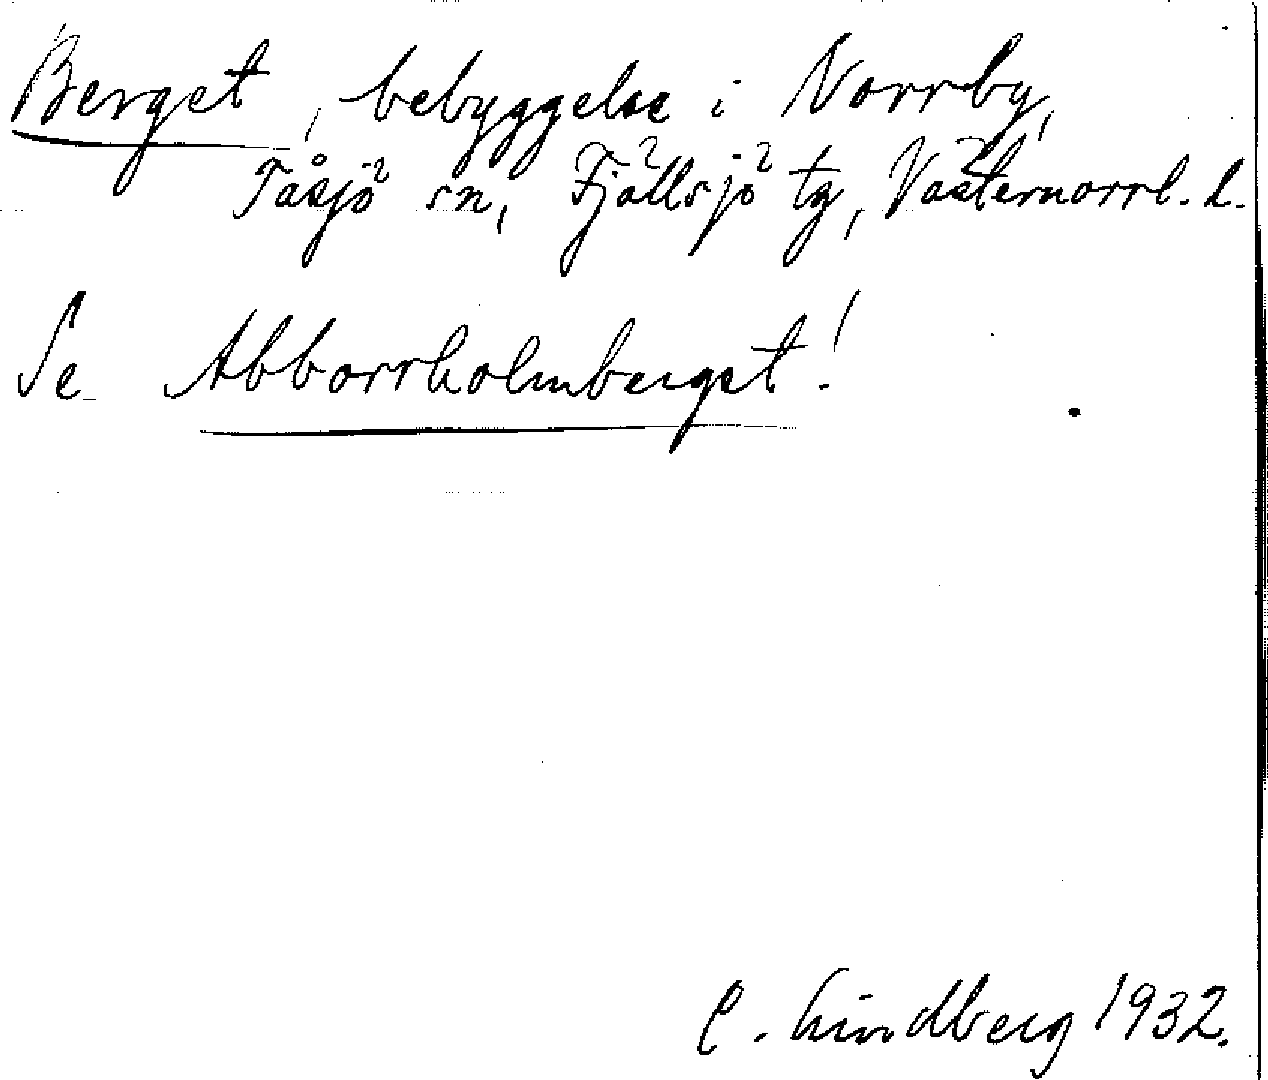 Berget, bebyggelse i Norrby,
Tåsjö sn, Fjällsjö tg, Västernorrl. l.
Se Abborrholmberget!
C. Lindberg 1932.